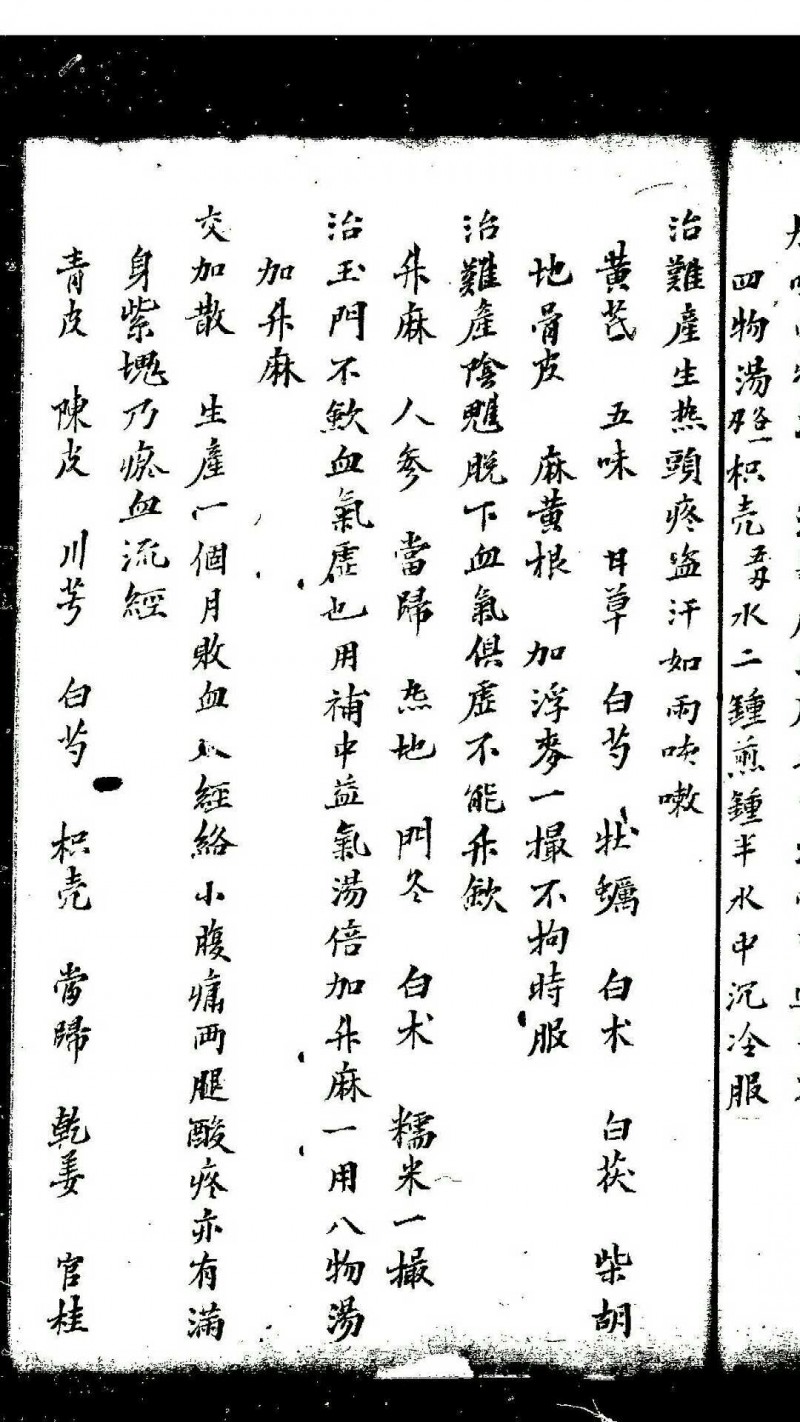 四物湯 枳壳 水二鍾煎鍾半水中沉冷服
治難產生热頭疼盗汗如雨咳嗽
黄芪 五味 甘草 白芍 牡蠣 白术 白茯 柴胡
地骨皮 麻黄根 加浮麥一撮不拘時服
治難產陰脱下血氣俱虚不能升歛
升麻 人參 當歸 熟地 門冬 白术 糯米一撮
治玉門不歛血氣虚也用補中益氣湯倍加升麻一用八物湯
加升麻
交加散 生產一個月敗血入經絡小腹痛両腿酸疼亦有滿
身紫塊乃瘀血流經
青皮 陳皮 川芎 白芍 枳壳 當歸 乾姜 官桂